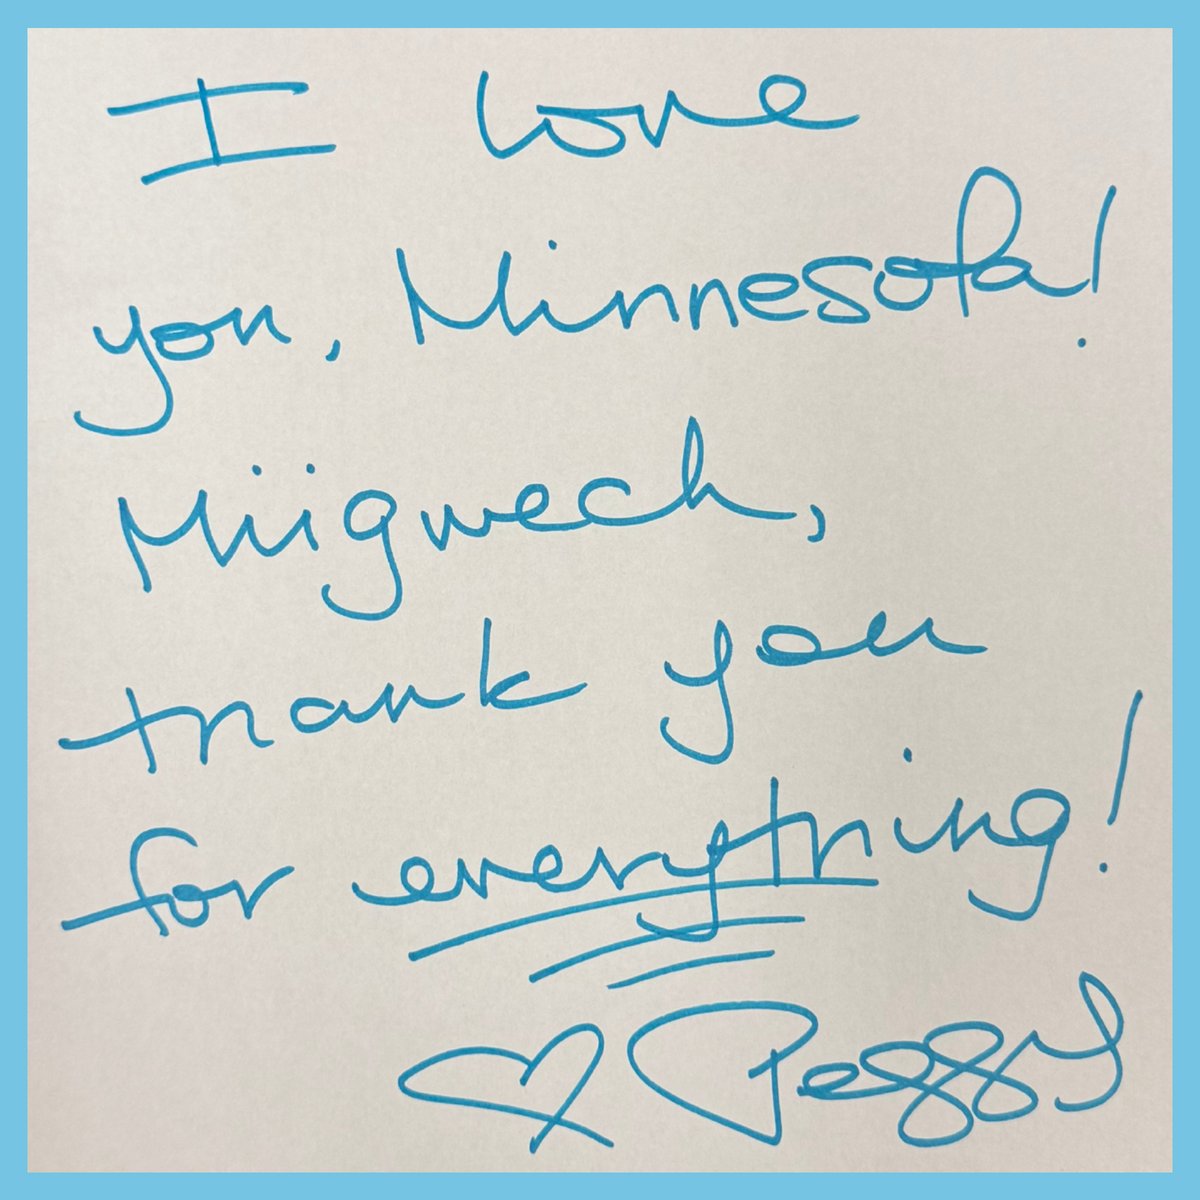 I love
you, Minnesota!
Miigwech,
thank you
for everything!
♡ Peggy